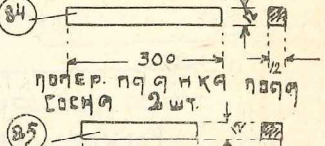 84
300
12
ПОПЕР. ПЛАНКА ПОЛА
СОСНА 2 ШТ.
85